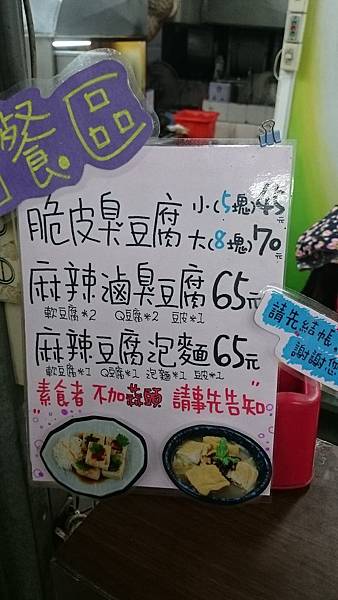 餐區
脆皮臭豆腐 小(5塊)45元
大(8塊)70元
麻辣滷臭豆腐 65元
軟豆腐*2 Q豆腐*2 豆皮*1
麻辣豆腐泡麵 65元
軟豆腐*1 Q豆腐*1 泡麵*1 豆皮*1
"素食者 不加蒜頭 請事先告知"
請先結帳,
謝謝您